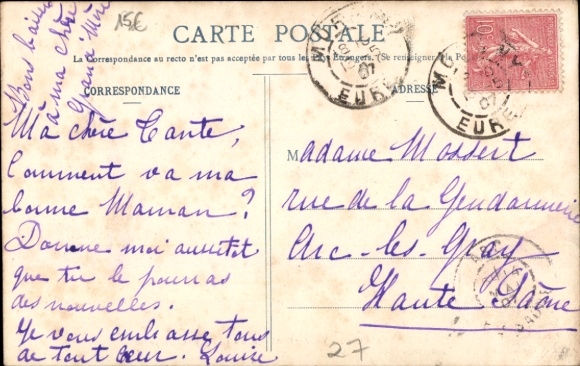 15€
Bons baisers
à ma chère
Grand'Mère
CARTE POSTALE
La Correspondance au recto n'est pas acceptée par tous les pays Étrangers. (Se renseigner
CORRESPONDANCE
ADRESSE
10
EURE
EURE
07
Mà chère Tante,
Comment va ma
bonne Maman?
Donne moi aussitôt
que tu le pourras
des nouvelles.
Je vous embrasse tous
de tout cœur. Louise
Madame Mossert
rue de la Gendarmerie
Arc-les-Gray
Haute Saône
27